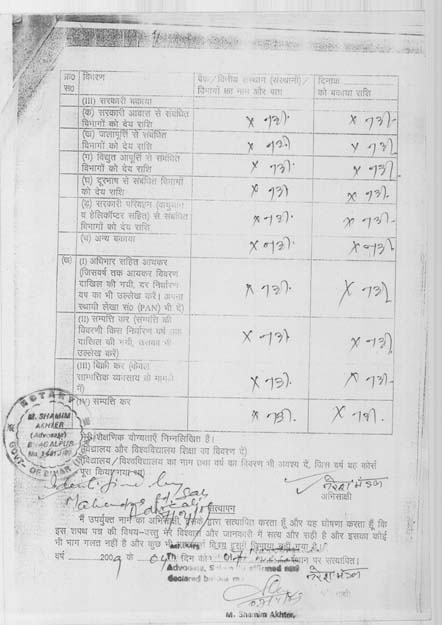 क्र० विवरण बैंक/वित्तीय संस्थान (संस्थानों)/ दिनांक
सं० विभागों का नाम और पता को बकाया राशि
(III) सरकारी बकाया
(क) सरकारी आवास से संबंधित
विभागों को देय राशि × नहीं × नहीं
(ख) जलापूर्ति से संबंधित
विभागों को देय राशि × नहीं × नहीं
(ग) विद्युत आपूर्ति से संबंधित
विभागों को देय राशि × नहीं × नहीं
(घ) दूरभाष से संबंधित विभागों
को देय राशि × नहीं × नहीं
(ङ) सरकारी परिवहन (वायुयान
व हेलिकॉप्टर सहित) से संबंधित
विभागों को देय राशि × नहीं × नहीं
(च) अन्य बकाया × नहीं × नहीं
(छ) (I) अधिभार सहित आयकर
(जिस वर्ष तक आयकर विवरण
दाखिल की गयी, कर निर्धारण
वर्ष का भी उल्लेख करें। अपना
स्थायी लेखा सं० (PAN) भी दें) × नहीं × नहीं
(II) सम्पत्ति कर (सम्पत्ति की
विवरणी किस निर्धारण वर्ष तक
दाखिल की गयी, उसका भी
उल्लेख करें) × नहीं × नहीं
(III) बिक्री कर (केवल
व्यवसाय के मामले
में) × नहीं × नहीं
(IV) सम्पत्ति कर × नहीं × नहीं
NOTARY
M. SHAMIM
AKHTER
(Advocate)
BHAGALPUR
GOVT. OF BIHAR
शैक्षणिक योग्यताएँ निम्नलिखित हैं।
विद्यालय और विश्वविद्यालय शिक्षा का विवरण दें)
विद्यालय/विश्वविद्यालय का नाम तथा वर्ष का विवरण भी अवश्य दें, जिस वर्ष वह कोर्स
पूरा किया गया था)
नरेश मंडल
अभिसाक्षी
सत्यापन
में उपर्युक्त नाम का अभिसाक्षी, इसके द्वारा सत्यापित करता हूँ और यह घोषणा करता हूँ कि
इस शपथ पत्र की विषय-वस्तु मेरे विश्वास और जानकारी में सत्य और सही है और इसका कोई
भी भाग गलत नहीं है और कुछ भी
वर्ष 2009 के दिन को स्थान पर सत्यापित।
Advocate,
declared before me
नरेश मंडल
M. Shamim Akhter,